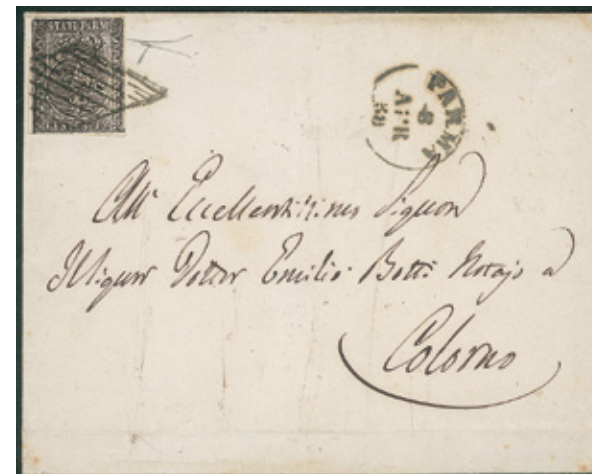 STATI PARM
PARMA
8
APR
58
All' Eccellentissimo Signor
Il Signor Dottor Emilio Botti Notajo a
Colorno